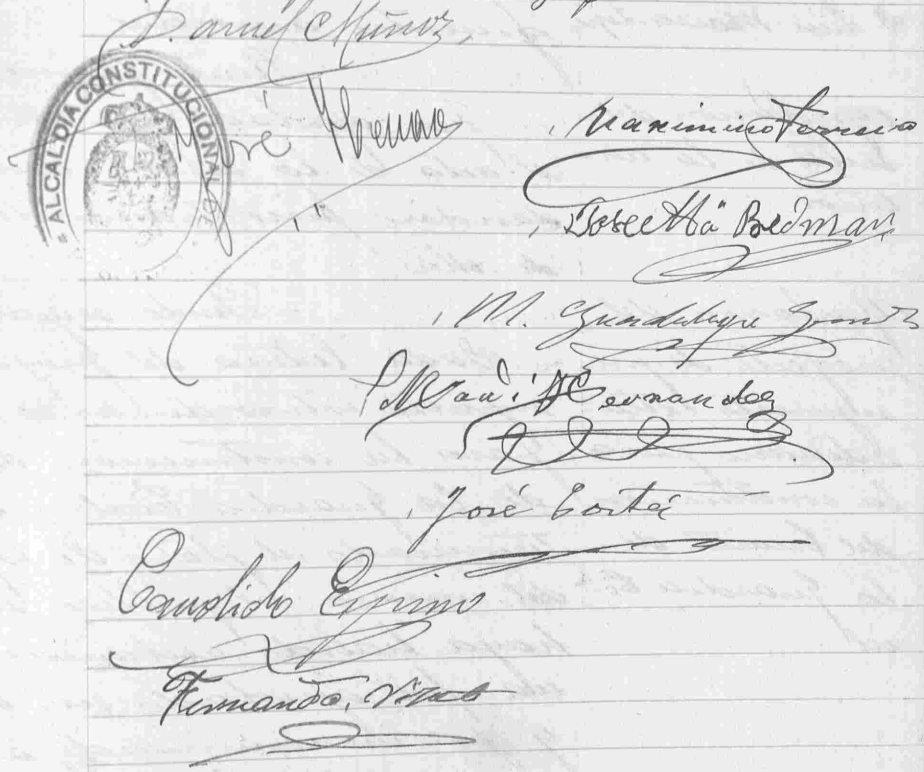 Daniel Muñoz
ALCALDIA CONSTITUCIONAL DE
José Henao
Maximino Ferreiro
José Mª Bedmar
M. Guadalupe
Hernandez
José Cortés
Candido Espino
Fernando